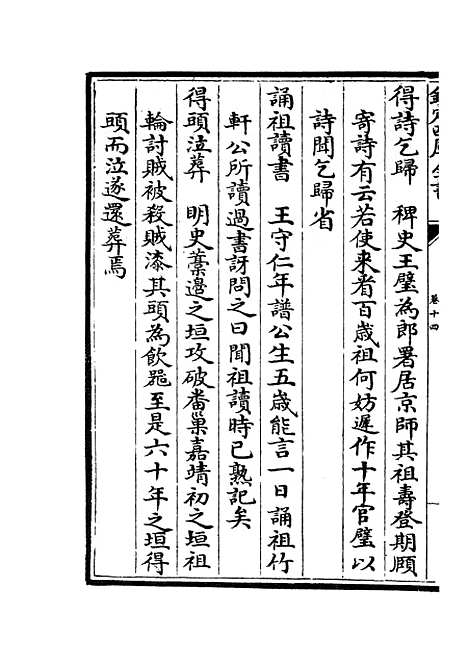 欽定四庫全書
卷十四
得詩乞歸　稗史王璧為郎署居京師其祖壽登期頤
寄詩有云若使来看百歳祖何妨遲作十年官璧以
詩聞乞歸省
誦祖讀書　王守仁年譜公生五歳能言一日誦祖竹
軒公所讀過書訝問之曰聞祖讀時已熟記矣
得頭泣葬　明史藁邉之垣攻破畨巢嘉靖初之垣祖
輪討賊被殺賊漆其頭為飲噐至是六十年之垣得
頭而泣遂還葬焉